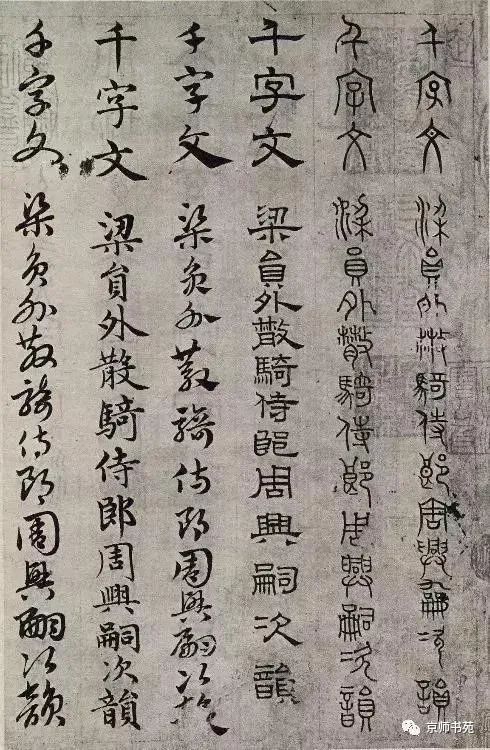 千字文 梁員外散騎侍郎周興嗣次韻
千字文 梁員外散騎侍郎周興嗣次韻
千字文 梁員外散騎侍郎周興嗣次韻
千字文 梁員外散騎侍郎周興嗣次韻
千字文 梁員外散騎侍郎周興嗣次韻
千字文 梁員外散騎侍郎周興嗣次韻
京师书苑